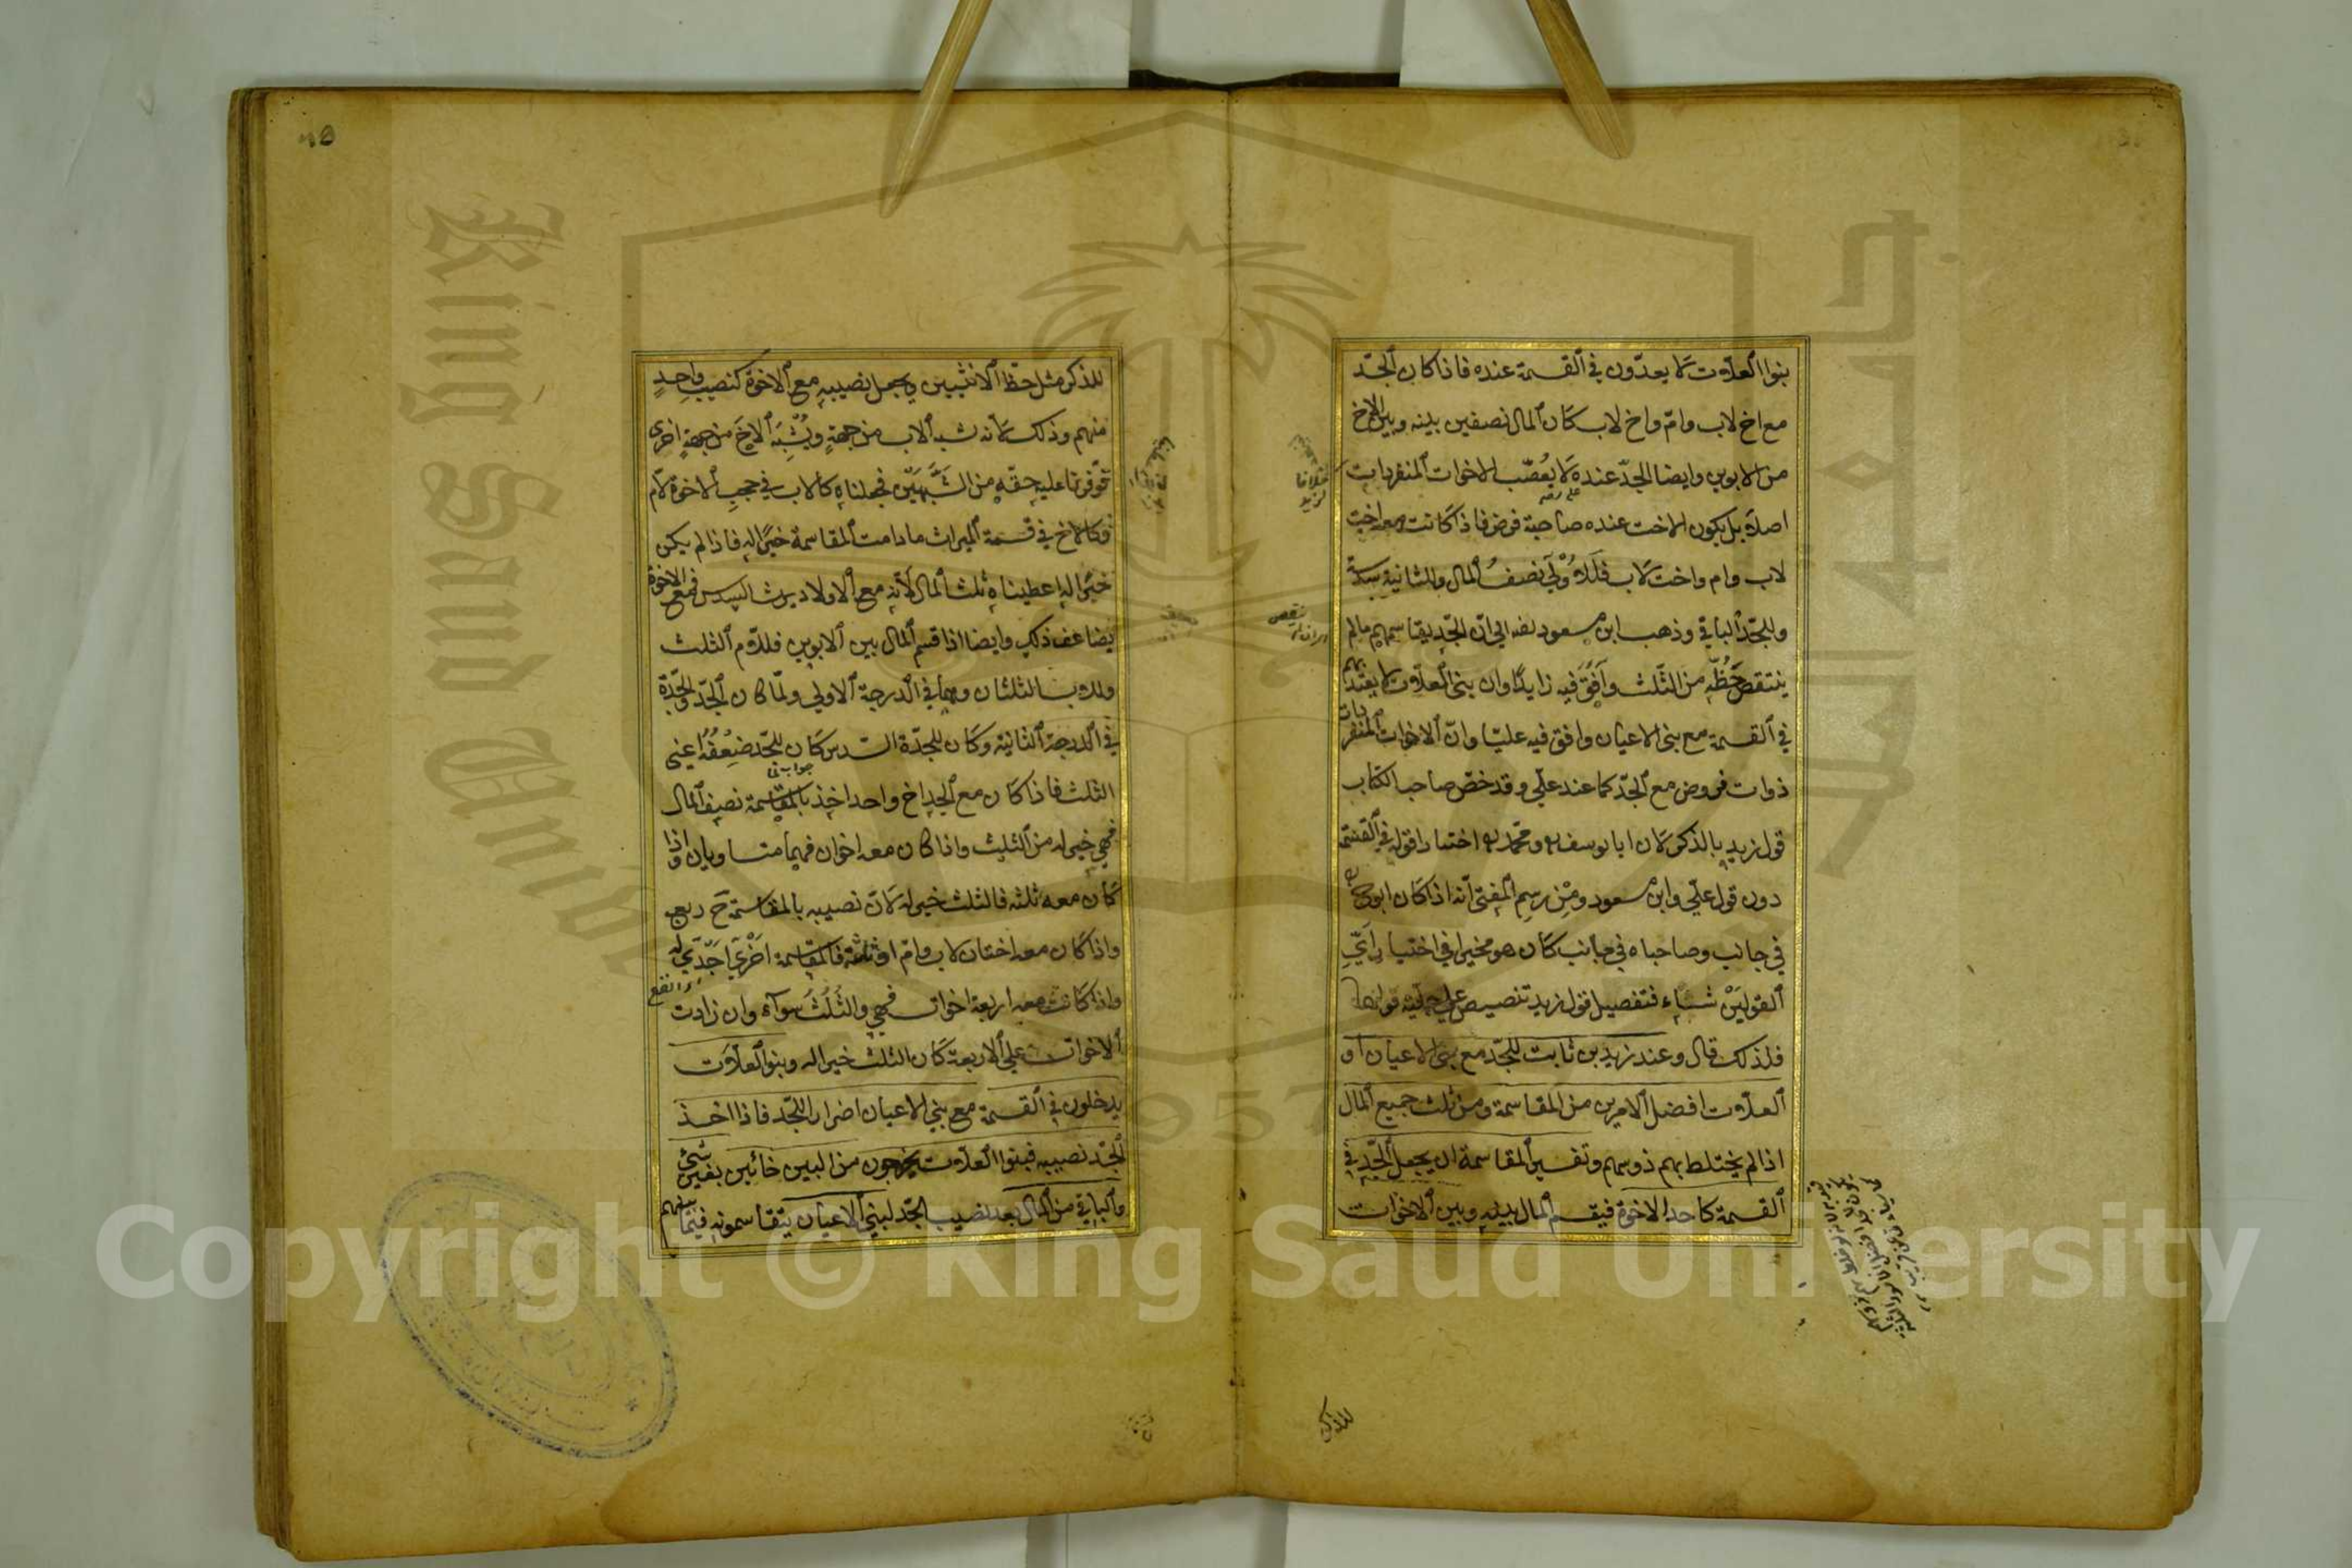 بنوا العلات لا يعدّون في القسمة عنده فاذا كان الجدّ
مع اخ لاب وامّ واخ لاب كان المال نصفين بينه وبين الاخ
من الابوين وايضا الجدّ عنده لا يعصّب الاخوات المنفردات
اصلا بل يكون الاخت عنده صاحبة فرض فاذا كانت معه اخت
لاب وام واخت لاب فللاولي نصف المال وللثانية سدسه
وللجدّ الباقي وذهب ابن مسعود رضه الي انّ الجدّ يقاسمهم مالم
ينتقص حظّه من الثلث وافق فيه زايدًا وان بني العلات لا يعتدّ بهم
في القسمة مع بني الاعيان وافق فيه عليّا وانّ الاخوات المنفردات
ذوات فروض مع الجدّ كما عند عليّ وقد خصّ صاحب الكتاب
قول زيد بالذكر لان ابا يوسف ومحمد اختارا قوله في القسمة
دون قول عليّ وابن مسعود ومن رسم المفتي انه اذا كان ابو ح
في جانب وصاحباه في جانب كان هو مخيرا في اختيار ايّ
القولين شاء فتفصيل قول زيد تنصيص علي
فلذلك قال وعند زيد بن ثابت للجدّ مع بني الاعيان او
العلات افضل الامرين من المقاسمة ومن ثلث جميع المال
اذا لم يختلط بهم ذو سهم وتفسير المقاسمة ان يجعل الجدّ في
القسمة كاحد الاخوة فيقسم المال بينه وبين الاخوات
للذكر
للذكر مثل حظ الانثيين ويجعل نصيبه مع الاخوة كنصيب واحد
منهم وذلك لانه شبه الاب من جهة ويشبه الاخ من جهة اخري
فوفّرنا عليه حقّه من الشبهين فجعلناه كالاب في حجب الاخوة لام
وكالاخ في قسمة الميراث مادامت المقاسمة خيرًا له فاذا لم يكن
خيرا له اعطيناه ثلث المال لانه مع الاولاد يرث السدس فمع الاخوة
يضاعف ذلك وايضا اذا قسم المال بين الابوين فللام الثلث
وللاب الثلثان وهما في الدرجة الاولي ولمّا كان الجدّ والجدّة
في الدرجة الثانية وكان للجدّة السدس كان للجدّ ضعفه اعني
الثلث فاذا كان مع الجد اخ واحد اخذ بالمقاسمة نصف المال
فهي خير له من الثلث واذا كان معه اخوان فهما متساويان واذا
كان معه ثلثة فالثلث خير له لانّ نصيبه بالمقاسمة ح ربع
واذا كان معه اختان لاب وامّ او ثلثة فالمقاسمة
واذا كانت معه اربعة اخوات فهي والثلث سوآء وان زادت
الاخوات علي الاربعة كان الثلث خيرا له وبنو العلات
يدخلون في القسمة مع بني الاعيان اضرارا للجدّ فاذا اخذ
الجدّ نصيبه فبنوا العلات يخرجون من البين خائبين بغير شئ
والباقي من المال بعد نصيب الجدّ لبني الاعيان يتقاسمونه فيما بينهم
Copyright © King Saud University
King Saud
1957